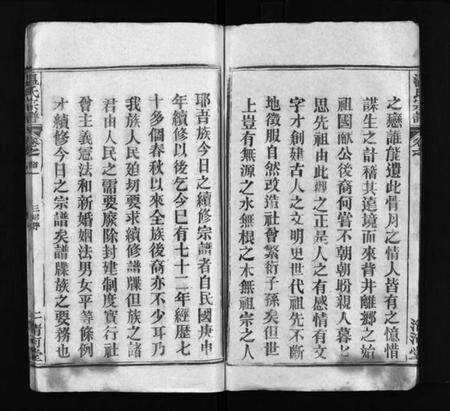 之戀誰能遣此惜月之情人皆有之憶惜
謀生之計稽其遠境而來背井離鄉之始
祖國獻公後裔何嘗不朝朝盼親人暮暮
思先祖由此鄉之正是人之有感情有文
字才創建古人之文明史世代祖先不斷
地徵服自然改造社會繁衍子孫矣但世
上豈有無源之水無根之木無祖宗之人
耶吾族今日之續修宗譜者自民國庚申
年續修以後迄今已有七十二年經歷七
十多個春秋以來全族後裔亦不少耳乃
我族人民迫切要求續修譜牒但族之諸
君由人民之需要廢除封建制度實行社
會主義憲法和新婚姻法男女平等條例
才續修今日之宗譜矣譜牒族之要務也
溫氏宗譜
卷之首
清河堂